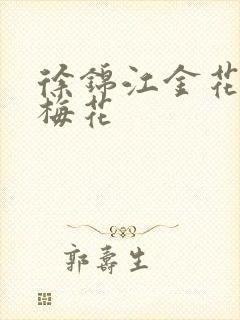 徐锦江金花
梅花
郭寿生